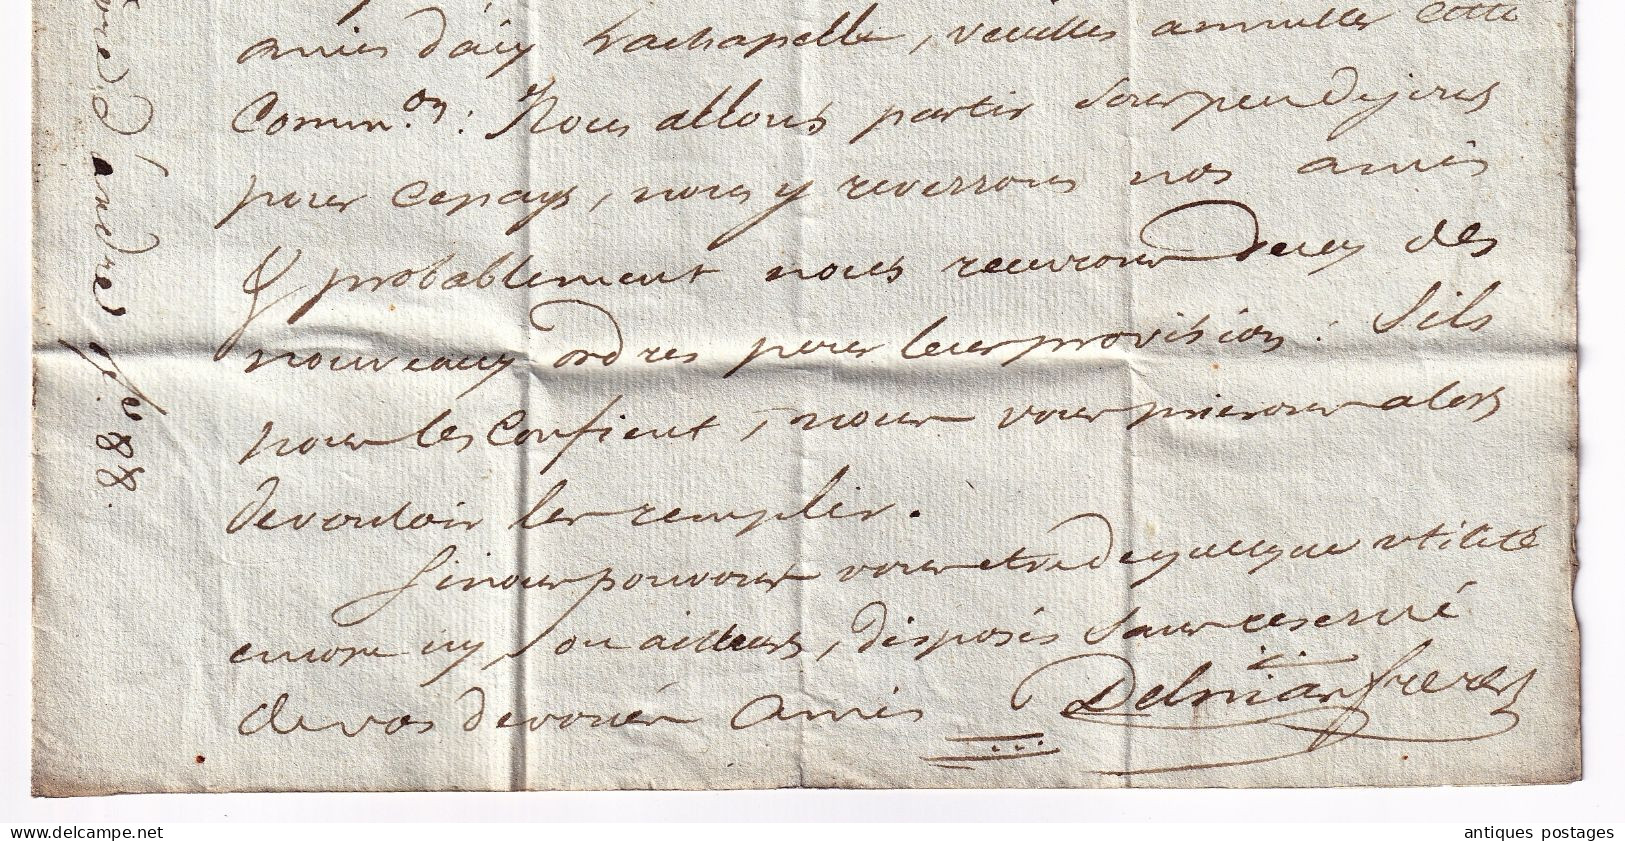 amis d'aix Lachapelle, veuilles annuller cette
Comm.on: Nous allons partir Sous peu de jours
pour ce pays, nous y reverrons nos amis
& probablement nous recevrons d'eux des
nouveaux ordres pour leur provision. S'ils
nous les confient, nous vous prierons alors
de vouloir les remplir.
Si nous pouvons vous etre de quelque utilité
encore icy, ou ailleurs, disposés Sans reserve
de vos devoués Amis Delmar freres
d'andre f.o 88.
delcampe.net
antiques postages